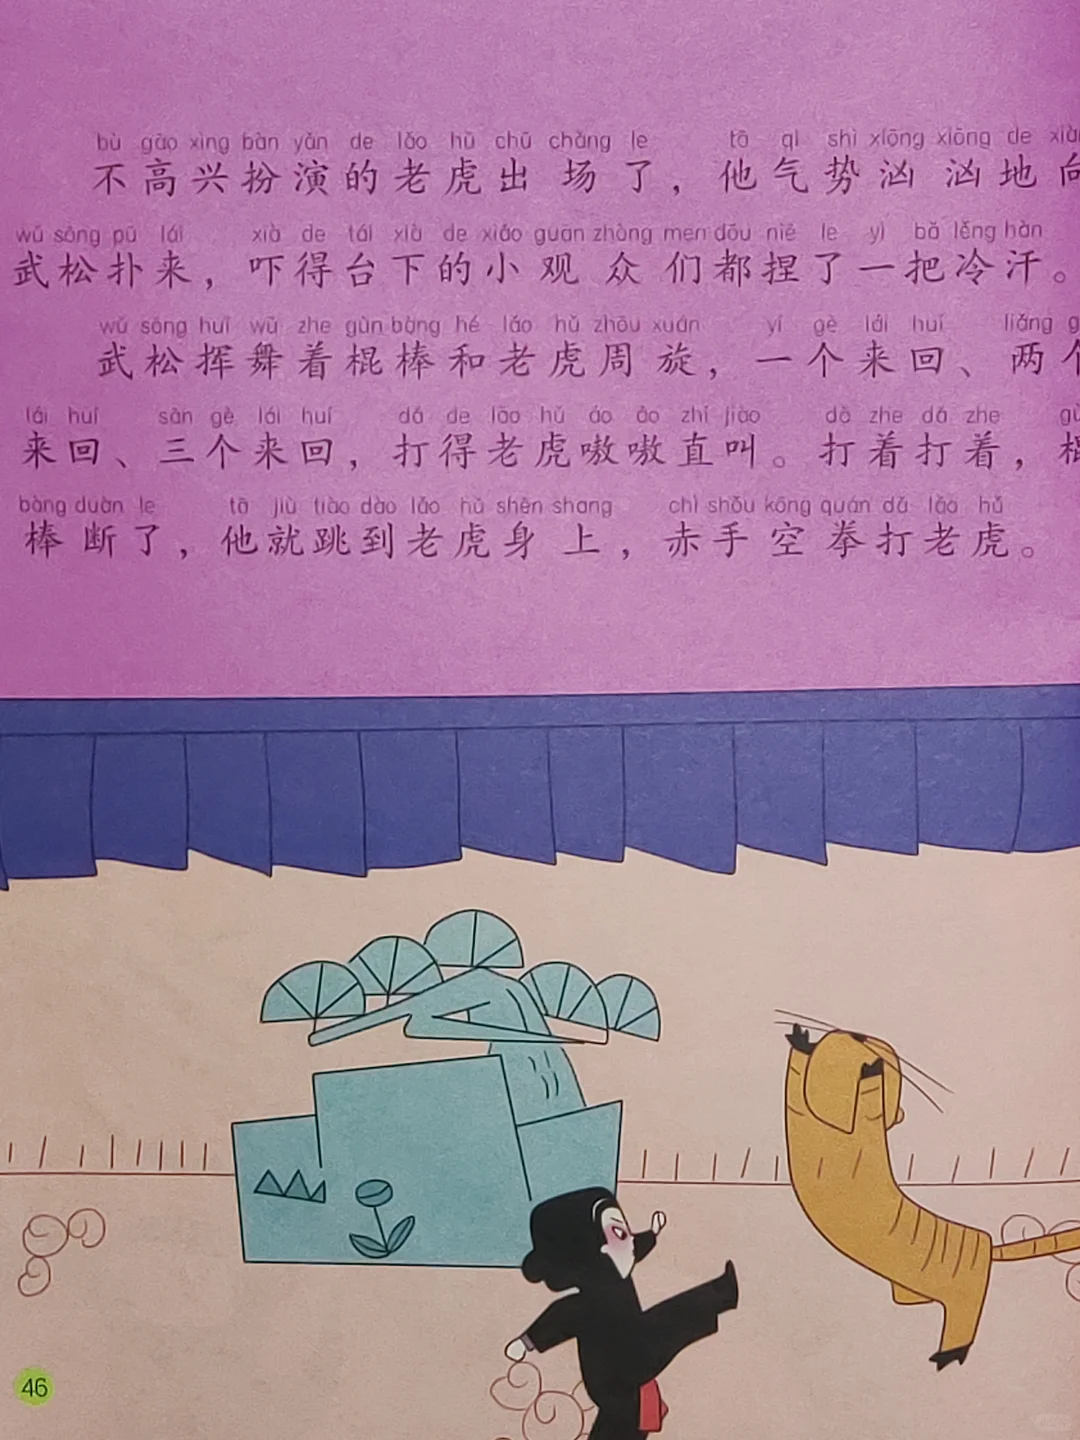 bù gāo xìng bàn yǎn de lǎo hǔ chū chǎng le tā qì shì xiōng xiōng de
不高兴扮演的老虎出场了，他气势汹汹地向
wǔ sōng pū lái xià de tái xià de xiǎo guān zhòng men dōu niē le yì bǎ lěng hàn
武松扑来，吓得台下的小观众们都捏了一把冷汗。
wǔ sōng huī wǔ zhe gùn bàng hé lǎo hǔ zhōu xuán yí gè lái huí liǎng
武松挥舞着棍棒和老虎周旋，一个来回、两个
lái huí sān gè lái huí dǎ de lǎo hǔ áo áo zhí jiào dǎ zhe dǎ zhe
来回、三个来回，打得老虎嗷嗷直叫。打着打着，棍
bàng duàn le tā jiù tiào dào lǎo hǔ shēn shang chì shǒu kōng quán dǎ lǎo hǔ
棒断了，他就跳到老虎身上，赤手空拳打老虎。
46